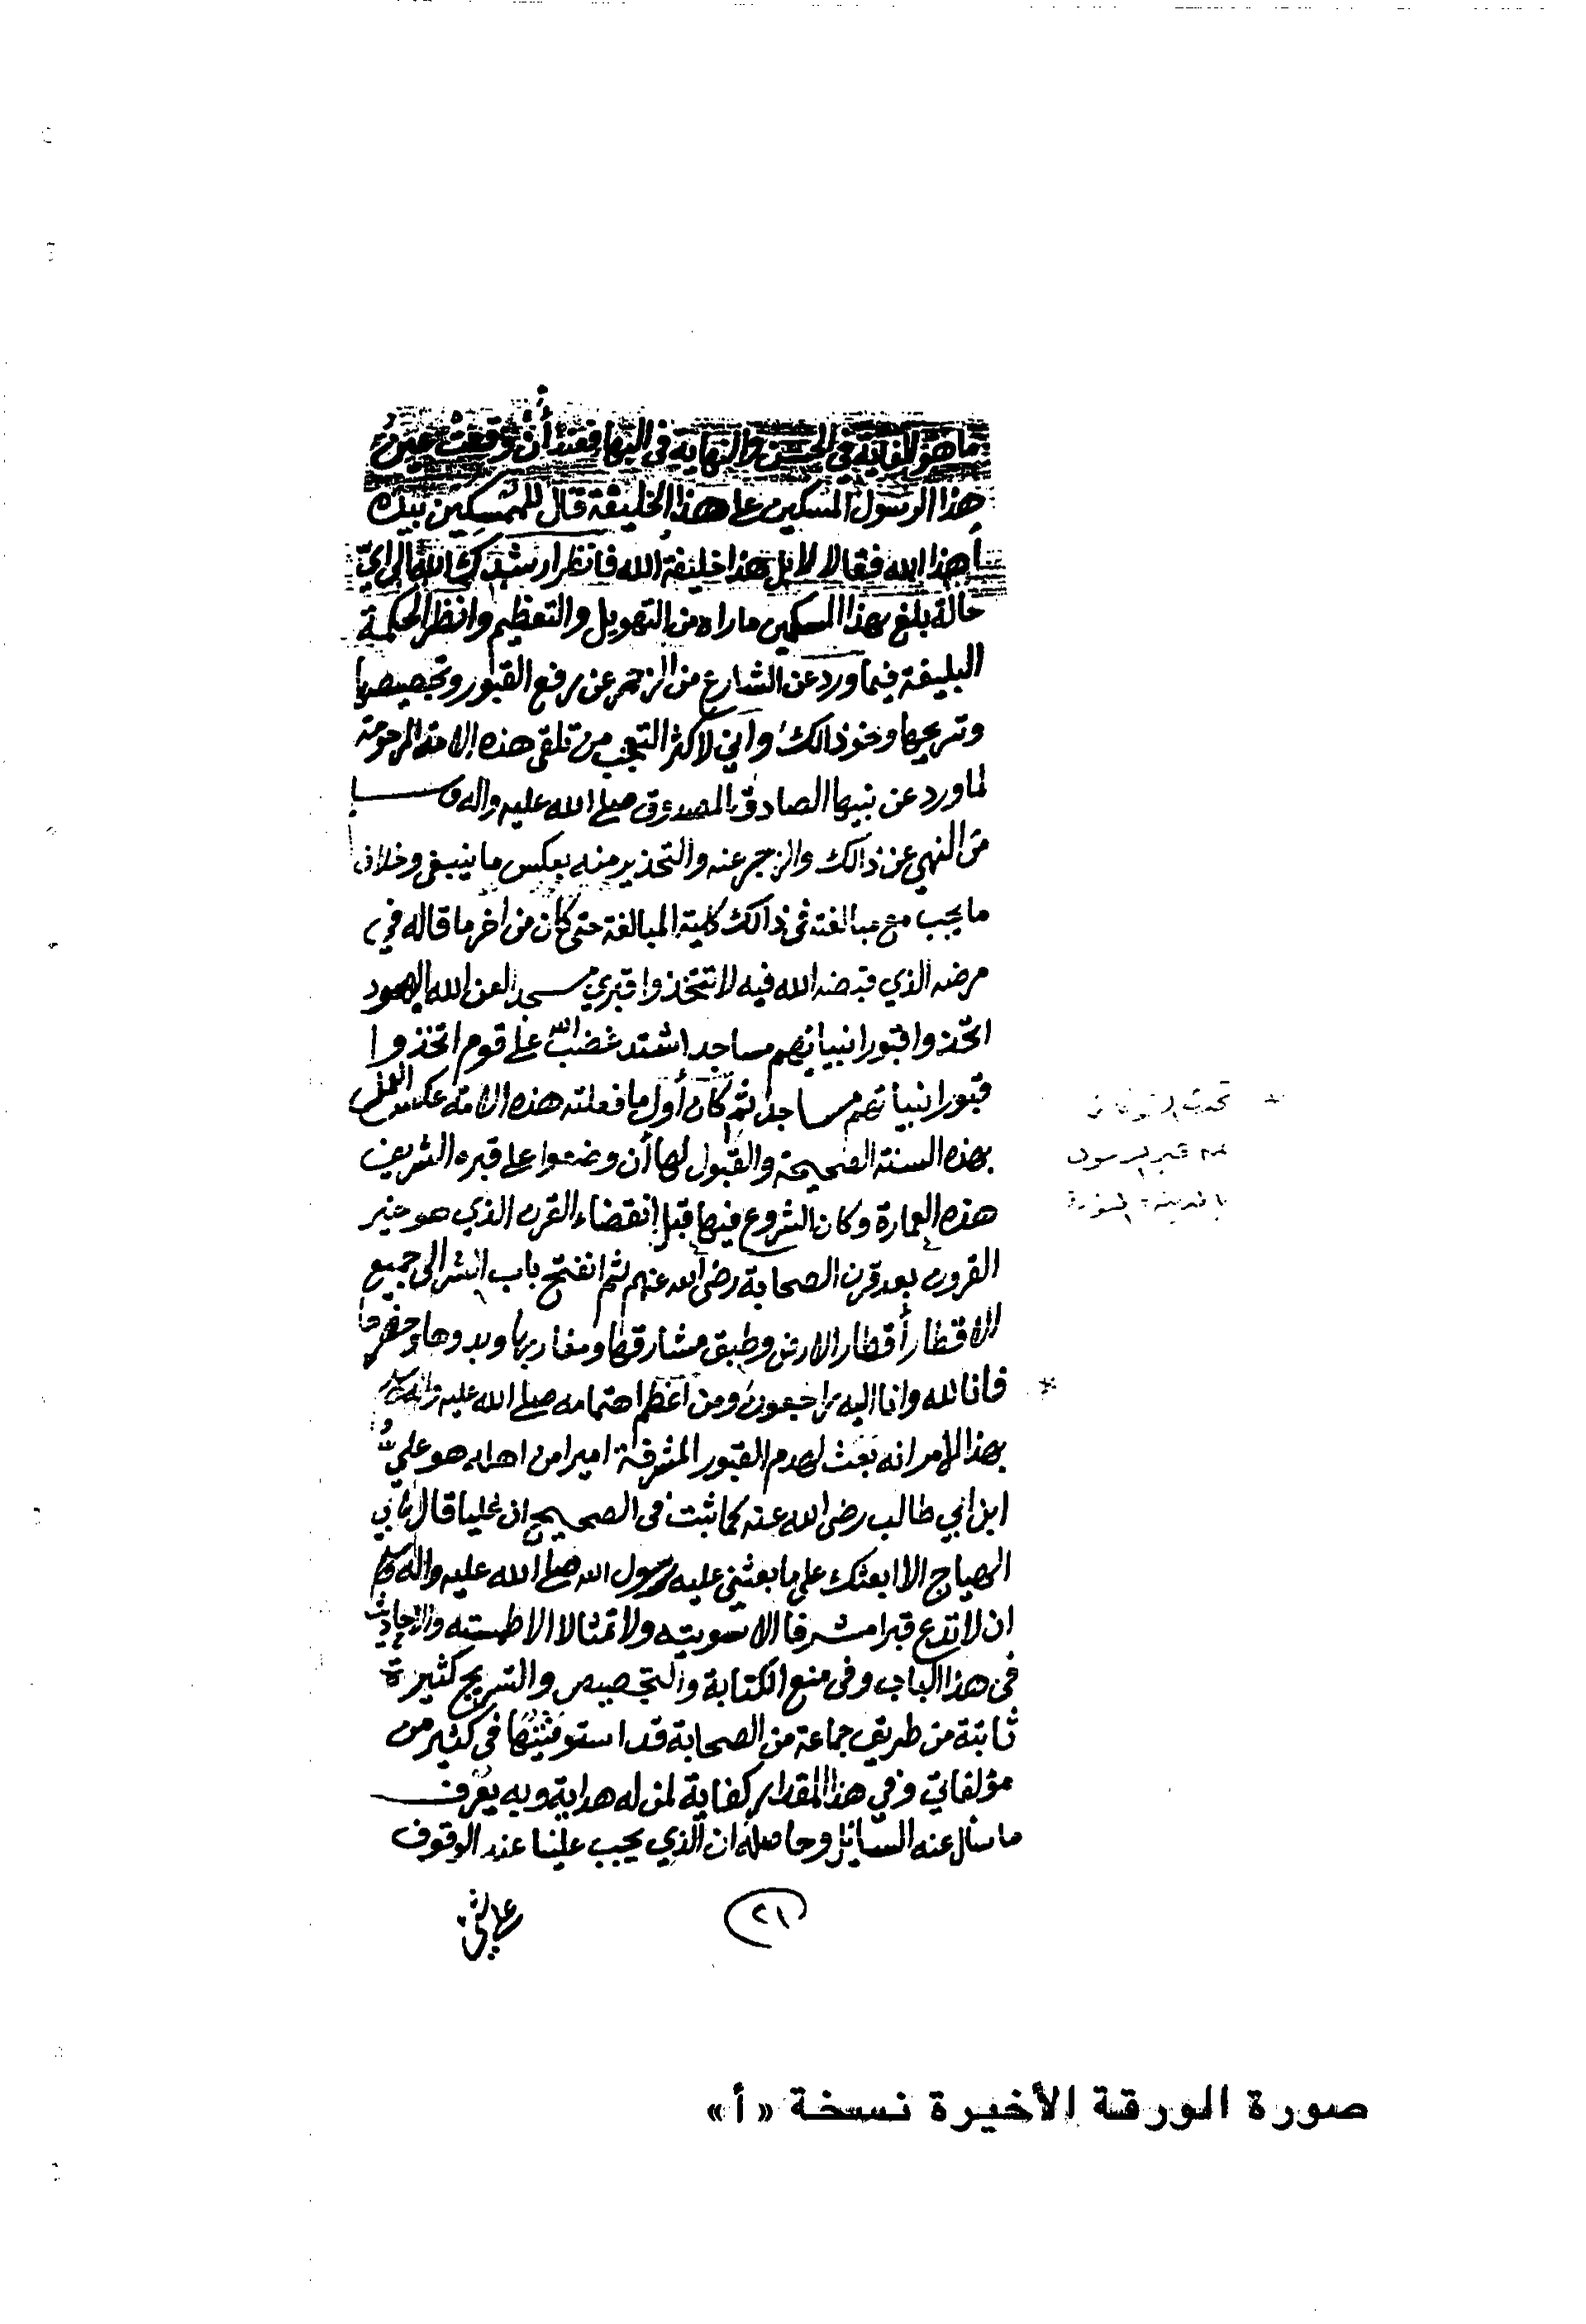 مما هو الغاية في الحسن والنهاية في البها فعند أن وقعت عين
هذا الرسول المسكين على هذا الخليفة قال للممسكين بيده
أهذا الله فقالا لا بل هذا خليفة الله فانظر ارشدك الله الى اي
حالة بلغ بهذا المسكين ما راه من التهويل والتعظيم وانظر الحكمة
البليغة فيما ورد عن الشارع من الزجر عن رفع القبور وتجصيصها
وتسريجها ونحو ذالك واني لاكثر التعجب من تلقي هذه الامة المرحومة
لما ورد عن نبيها الصادق المصدوق صلى الله عليه واله وسلم
من النهي عن ذالك والزجر عنه والتحذير منه بعكس ما ينبغي وخلاف
ما يجب مع مبالغته في ذالك كلية المبالغة حتى كان من اخر ما قاله في
مرضه الذي قبضه الله فيه لا تتخذوا قبري مسجدا لعن الله اليهود
اتخذوا قبور انبيائهم مساجد اشتد غضب الله على قوم اتخذوا
قبور انبيائهم مساجد ثم كان أول ما فعلته هذه الامة عكس العمل
بهذه السنة الصحيحة والقبول لها أن وضعوا على قبره الشريف
هذه العمارة وكان الشروع فيها قبل انقضاء القرن الذي هو خير
القرون بعد قرن الصحابة رضي الله عنهم ثم انفتح باب الشر الى جميع
الاقطار أقطار الارض وطبق مشارقها ومغاربها وبدوها وحضرها
فانا لله وانا اليه راجعون ومن اعظم اهتمامه صلى الله عليه واله وسلم
بهذا الامر انه بعث لهدم القبور المشرفة اميرا من اهله هو علي
ابن ابي طالب رضي الله عنه كما ثبت في الصحيح ان عليا قال لابي
الهياج الا ابعثك على ما بعثني عليه رسول الله صلى الله عليه واله وسلم
ان لا تدع قبرا مشرفا الا سويته ولا تمثالا الا طمسته والاحاديث
في هذا الباب وفي منع الكتابة والتجصيص والتسريج كثيرة
ثابتة من طريق جماعة من الصحابة قد استوفيتها في كثير من
مؤلفاتي وفي هذا المقدار كفاية لمن له هداية وبه يعرف
ما سأل عنه السائل وحاصله ان الذي يجب علينا عند الوقوف
٢١
قبر الرسول
بالمدينة المنورة
صورة الورقة الأخيرة نسخة «أ»